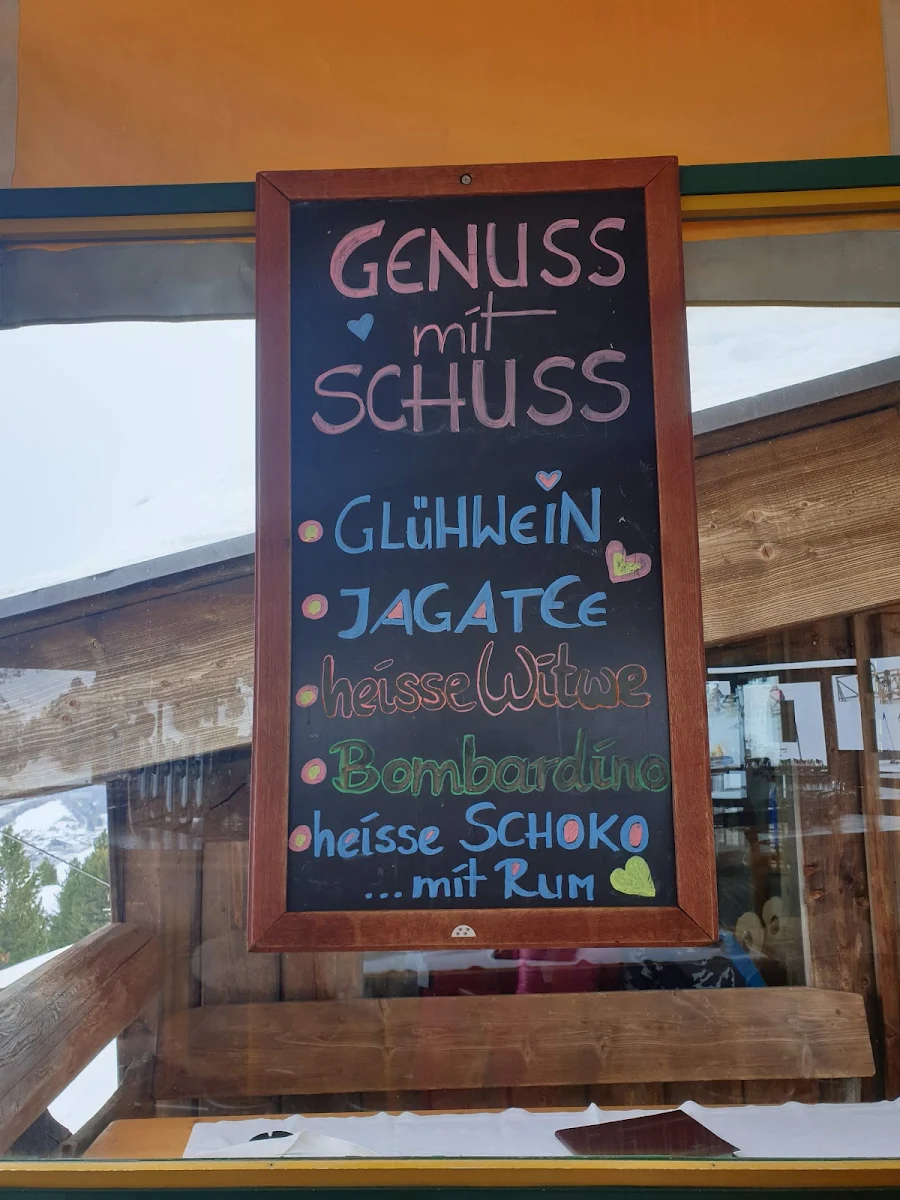 GENUSS
mit
SCHUSS
GLüHWEiN
JAGATEE
heisse Witwe
Bombardino
heisse SCHOKO
...mit RUM